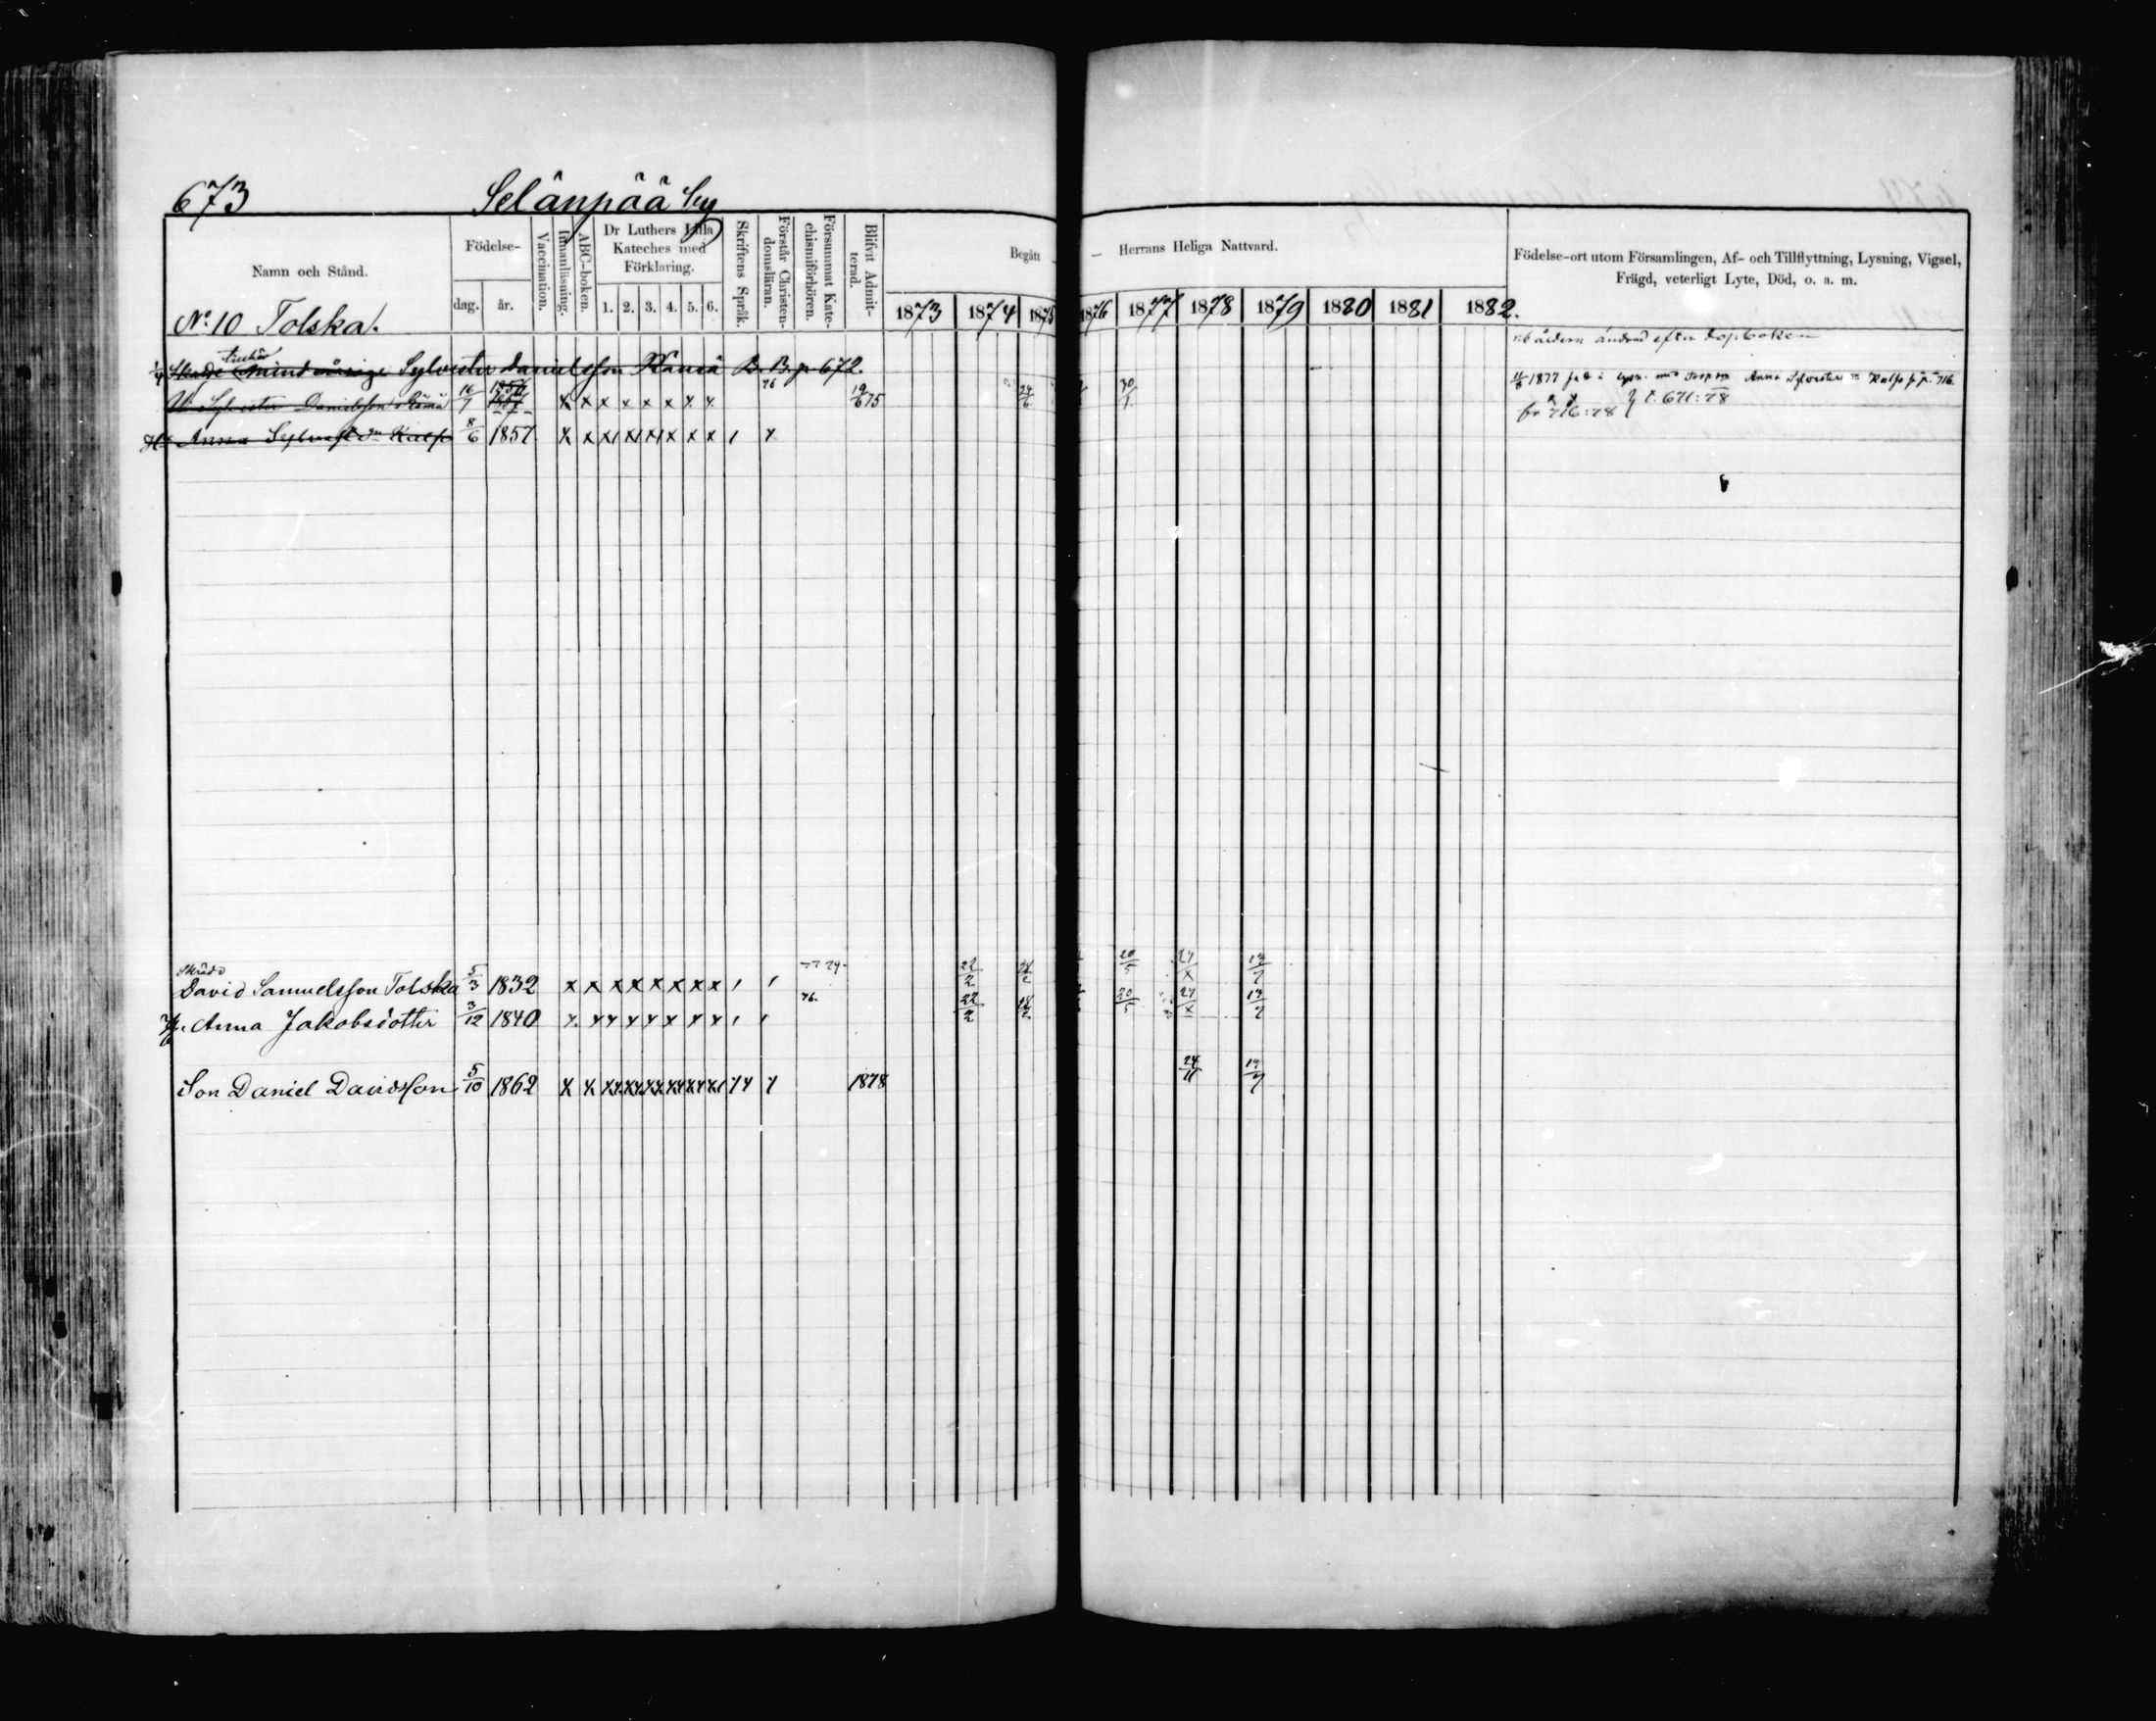 673 Selänpää by
Namn och Stånd.
Födelse-
dag. år.
Vaccination.
Innanläsning.
ABC-boken.
Dr Luthers Lilla
Kateches med
Förklaring.
1. 2. 3. 4. 5. 6.
Skriftens Språk.
Förstår Christen-
domsläran.
Försummat Kate-
chismiförhören.
Blifvit Admit-
terad.
Begått — Herrans Heliga Nattvard.
1873 1874 1875 1876 1877 1878 1879 1880 1881 1882.
Födelse-ort utom Församlingen, Af- och Tillflyttning, Lysning, Vigsel,
Frägd, veterligt Lyte, Död, o. a. m.
No 10 Tolska.
åldern ändrad efter dopboken
Sylvester Danielsson B. B. p. 672.
Sylvester Danielsson 16/1 x x x x x x x x 76 19/6 75 24/6 30/1 1877 Anna Sylvester 716.
fr 716:78 t. 671:78
Anna 8/6 1857 x x x x x x x x
David Samuelsson Tolska 5/3 1832 x x x x x x x x 22/2 20/5 24/x 13/7
Anna Jakobsdotter 3/12 1840 76. 22/2 20/5 24/x 13/7
Son Daniel Davidsson 5/10 1862 1878 24/11 13/7